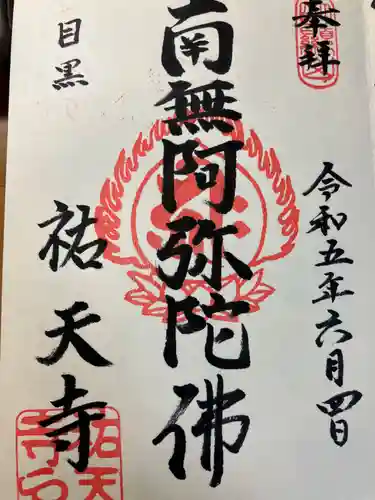 奉拝
令和五年六月四日
南無阿弥陀佛
目黒
祐天寺